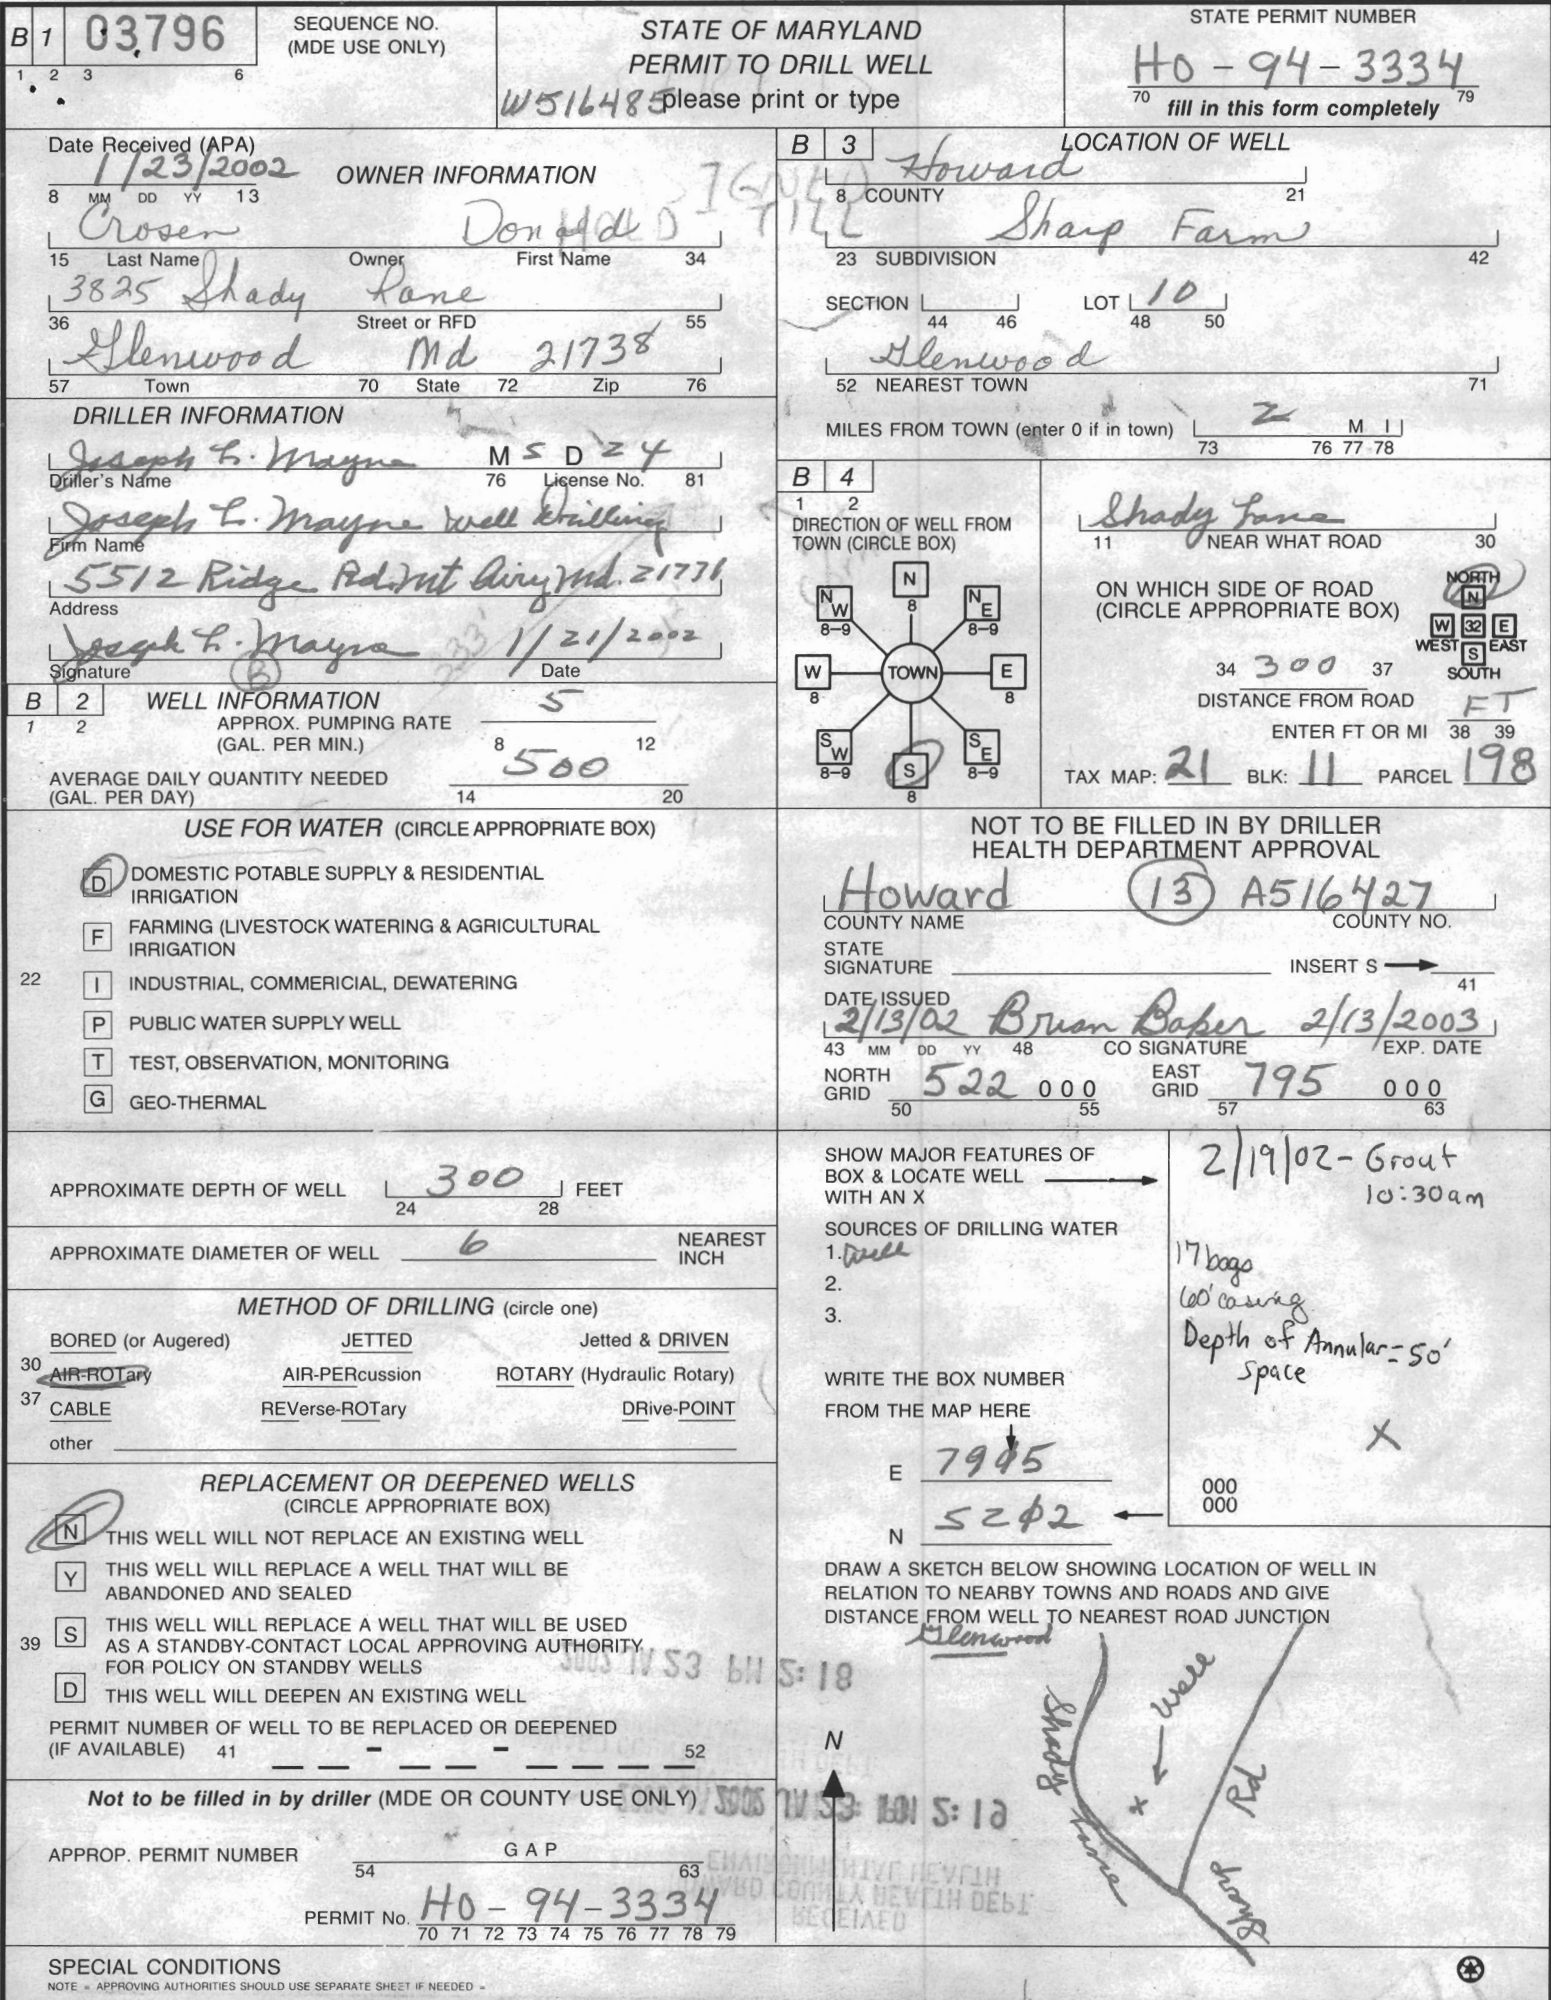 B 1 03796
1 2 3 6
SEQUENCE NO.
(MDE USE ONLY)
STATE OF MARYLAND
PERMIT TO DRILL WELL
W516485 please print or type
STATE PERMIT NUMBER
HO - 94 - 3334
70 79
fill in this form completely
Date Received (APA)
1/23/2002
8 MM DD YY 13
OWNER INFORMATION
Crosen Donald
15 Last Name Owner First Name 34
3825 Shady Lane
36 Street or RFD 55
Glenwood Md 21738
57 Town 70 State 72 Zip 76
DRILLER INFORMATION
Joseph L. Mayne M S D 24
Driller's Name 76 License No. 81
Joseph L. Mayne Well Drilling
Firm Name
5512 Ridge Rd. Mt Airy Md. 21771
Address
Joseph L. Mayne 1/21/2002
Signature Date
B 2 WELL INFORMATION
1 2
APPROX. PUMPING RATE 5
(GAL. PER MIN.) 8 12
AVERAGE DAILY QUANTITY NEEDED 500
(GAL. PER DAY) 14 20
USE FOR WATER (CIRCLE APPROPRIATE BOX)
D DOMESTIC POTABLE SUPPLY & RESIDENTIAL
IRRIGATION
F FARMING (LIVESTOCK WATERING & AGRICULTURAL
IRRIGATION
22 I INDUSTRIAL, COMMERICIAL, DEWATERING
P PUBLIC WATER SUPPLY WELL
T TEST, OBSERVATION, MONITORING
G GEO-THERMAL
APPROXIMATE DEPTH OF WELL 300 FEET
24 28
APPROXIMATE DIAMETER OF WELL 6 NEAREST
INCH
METHOD OF DRILLING (circle one)
BORED (or Augered) JETTED Jetted & DRIVEN
30 AIR-ROTary AIR-PERcussion ROTARY (Hydraulic Rotary)
37 CABLE REVerse-ROTary DRive-POINT
other
REPLACEMENT OR DEEPENED WELLS
(CIRCLE APPROPRIATE BOX)
N THIS WELL WILL NOT REPLACE AN EXISTING WELL
Y THIS WELL WILL REPLACE A WELL THAT WILL BE
ABANDONED AND SEALED
39 S THIS WELL WILL REPLACE A WELL THAT WILL BE USED
AS A STANDBY-CONTACT LOCAL APPROVING AUTHORITY
FOR POLICY ON STANDBY WELLS
D THIS WELL WILL DEEPEN AN EXISTING WELL
PERMIT NUMBER OF WELL TO BE REPLACED OR DEEPENED
(IF AVAILABLE) 41 - - 52
Not to be filled in by driller (MDE OR COUNTY USE ONLY)
APPROP. PERMIT NUMBER G A P
54 63
PERMIT No. HO - 94 - 3334
70 71 72 73 74 75 76 77 78 79
B 3 LOCATION OF WELL
Howard
8 COUNTY 21
Sharp Farm
23 SUBDIVISION 42
SECTION LOT 10
44 46 48 50
Glenwood
52 NEAREST TOWN 71
MILES FROM TOWN (enter 0 if in town) 2 M I
73 76 77 78
B 4
1 2
DIRECTION OF WELL FROM
TOWN (CIRCLE BOX)
N
8
NW NE
8-9 8-9
W TOWN E
8 8
SW SE
8-9 S 8-9
8
Shady Lane
11 NEAR WHAT ROAD 30
ON WHICH SIDE OF ROAD
(CIRCLE APPROPRIATE BOX)
NORTH
N
W 32 E
WEST S EAST
SOUTH
34 300 37
DISTANCE FROM ROAD
ENTER FT OR MI FT
38 39
TAX MAP: 21 BLK: 11 PARCEL 198
NOT TO BE FILLED IN BY DRILLER
HEALTH DEPARTMENT APPROVAL
Howard 13 A516427
COUNTY NAME COUNTY NO.
STATE
SIGNATURE INSERT S
41
DATE ISSUED
2/13/02 Brian Baker 2/13/2003
43 MM DD YY 48 CO SIGNATURE EXP. DATE
NORTH
GRID 522 000
50 55
EAST
GRID 795 000
57 63
SHOW MAJOR FEATURES OF
BOX & LOCATE WELL
WITH AN X
SOURCES OF DRILLING WATER
1. Well
2.
3.
WRITE THE BOX NUMBER
FROM THE MAP HERE
E 7995
N 5202
2/19/02 - Grout
10:30am
17 bags
60' casing
Depth of Annular = 50'
space
X
000
000
DRAW A SKETCH BELOW SHOWING LOCATION OF WELL IN
RELATION TO NEARBY TOWNS AND ROADS AND GIVE
DISTANCE FROM WELL TO NEAREST ROAD JUNCTION
Glenwood
Well
Shady Lane
x
Sharp Rd
N
2002 JA 23 PM 2:18
2002 JA 23 PM 2:19
ENVIRONMENTAL HEALTH
HOWARD COUNTY HEALTH DEPT.
RECEIVED
SPECIAL CONDITIONS
NOTE - APPROVING AUTHORITIES SHOULD USE SEPARATE SHEET IF NEEDED -